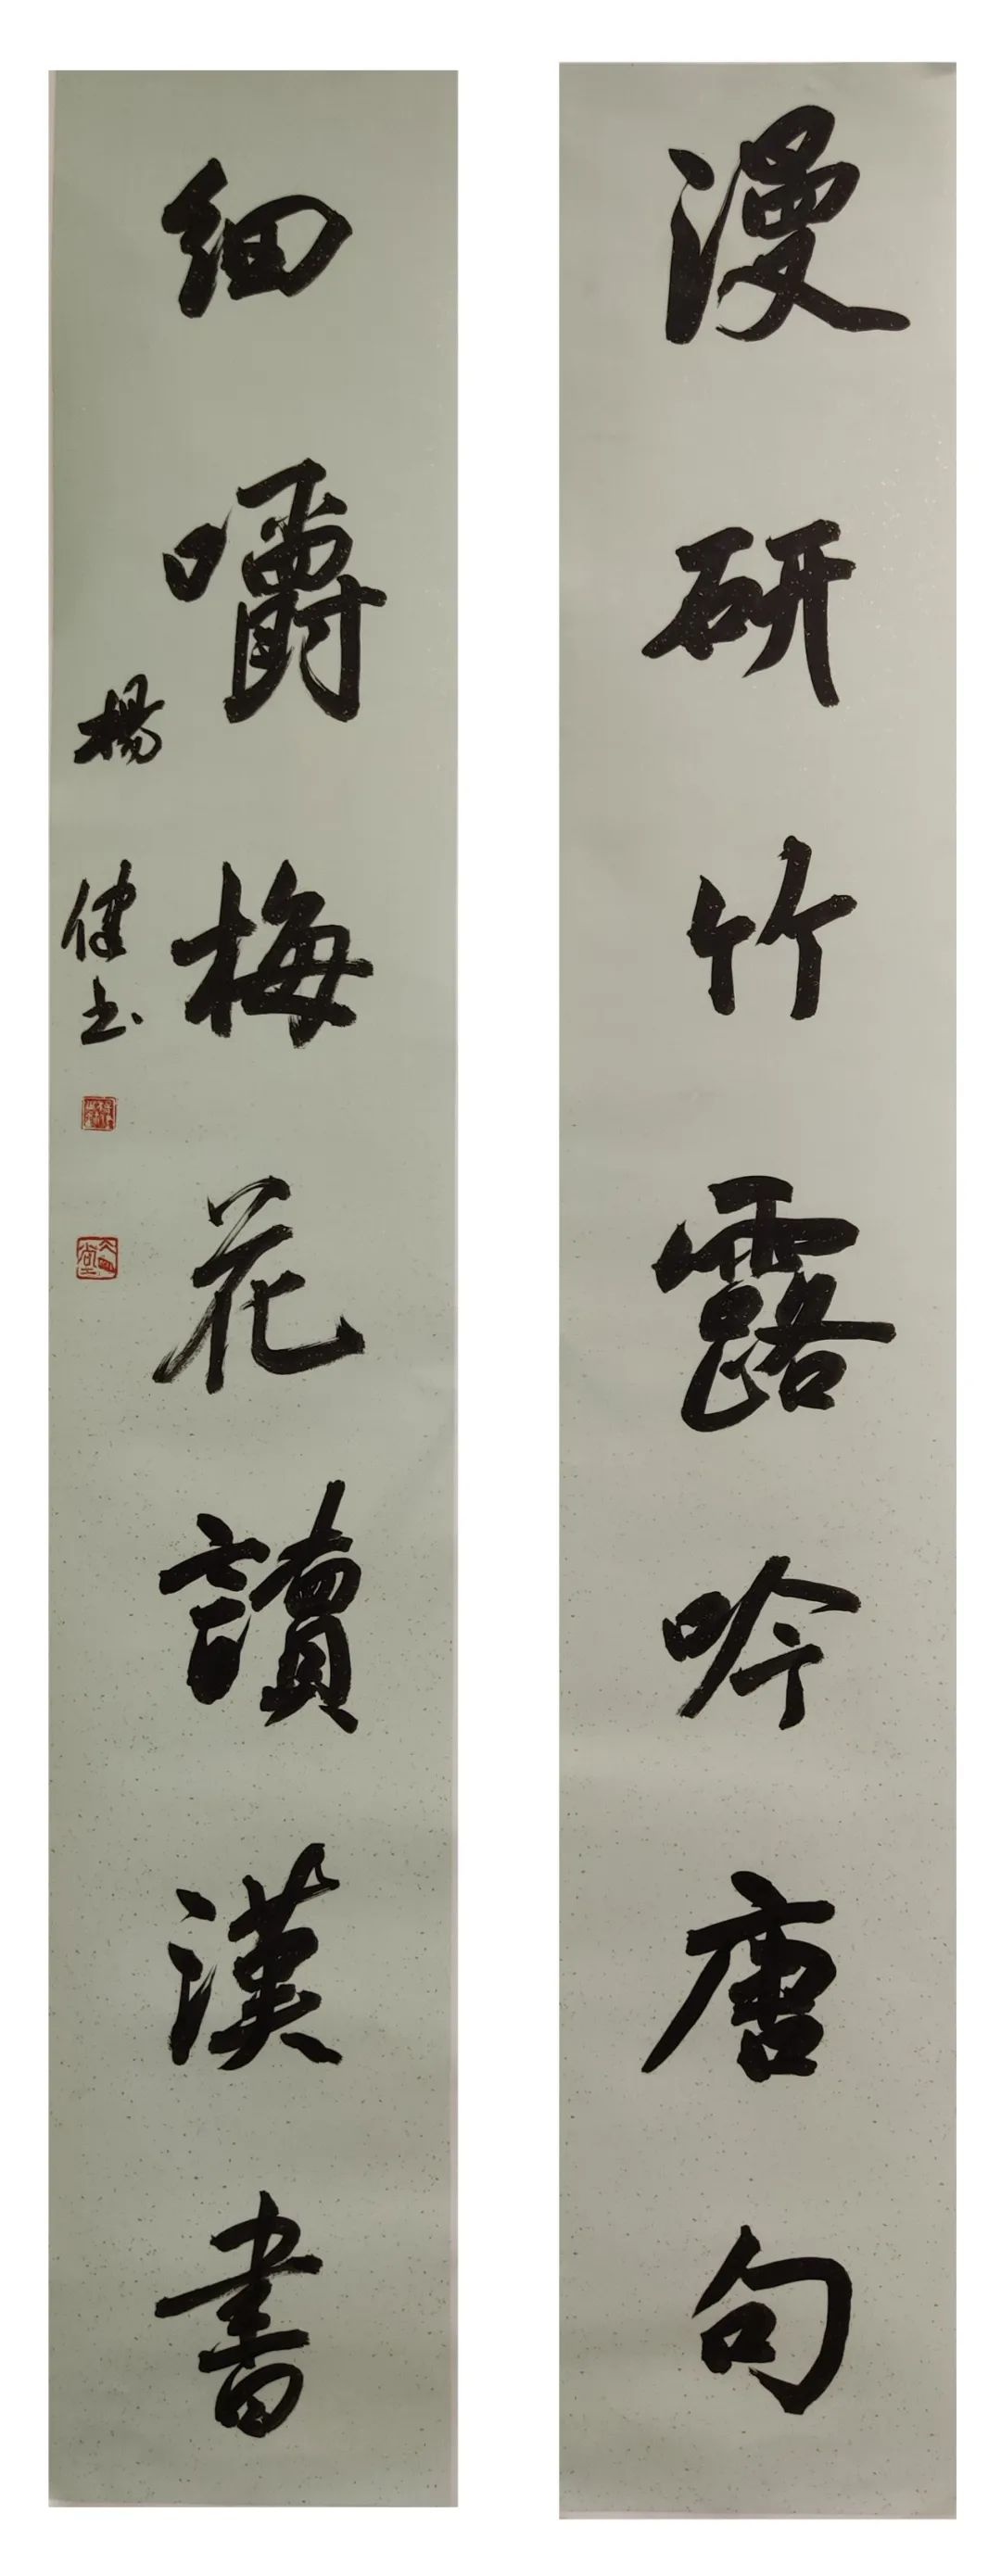 漫研竹露吟唐句
細嚼梅花讀漢書
楊健书